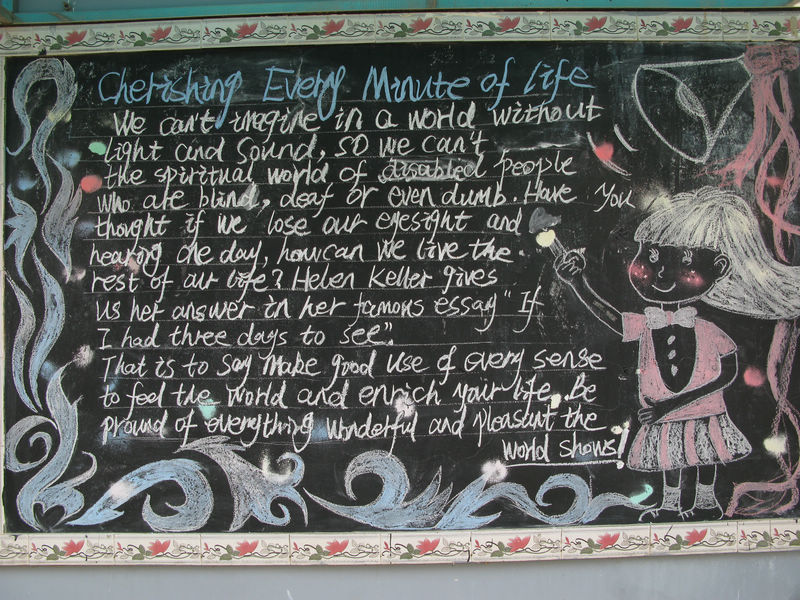 Cherishing Every Minute of life
We can't imagine in a world without
light and sound, so we can't
the spiritual world of disabled people
who are blind, deaf or even dumb. Have you
thought if we lose our eyesight and
hearing one day, how can we live the
rest of our life? Helen Keller gives
us her answer in her famous essay "If
I had three days to see".
That is to say make good use of every sense
to feel the world and enrich your life. Be
pround of everything wonderful and pleasant the
world shows!